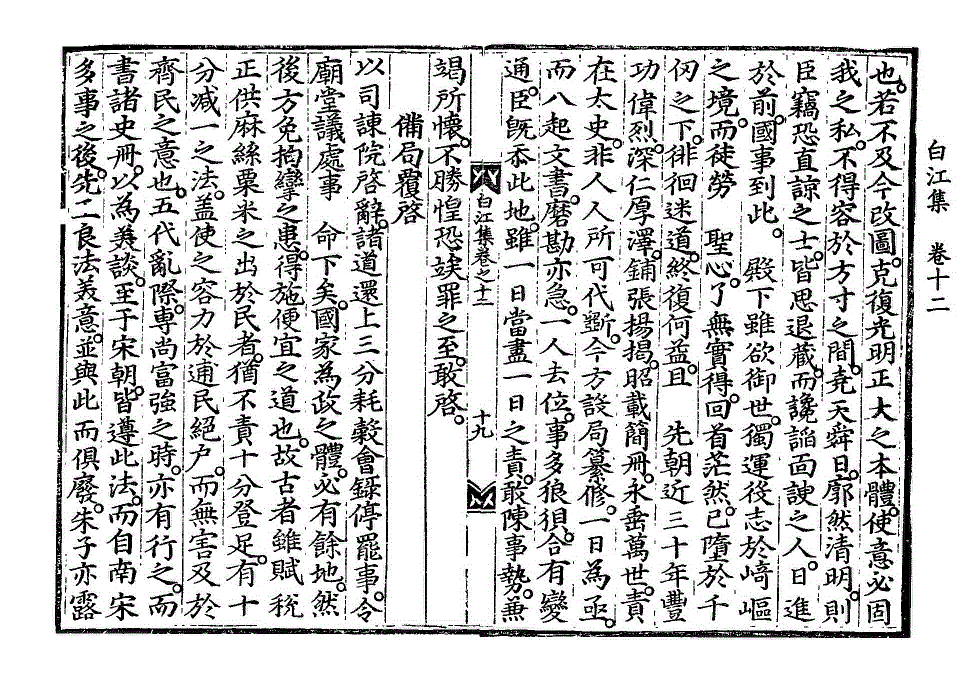 白江集　卷十二
也。若不及今改圖。克復光明正大之本體。使意必固
我之私。不得容於方寸之間。堯天舜日。廓然清明。則
臣竊恐直諒之士。皆思退藏。而讒諂面諛之人。日進
於前。國事到此。　殿下雖欲御世。獨運役志於崎嶇
之境。而徒勞　聖心。了無實得。回首茫然。已墮於千
仞之下。徘徊迷道。終復何益。且　先朝近三十年豐
功偉烈。深仁厚澤。鋪張揚揭。昭載簡冊。永垂萬世。責
在太史。非人人所可代斲。今方設局纂修。一日爲亟。
而八起文書。磨勘亦急。一人去位。事多狼狽。合有變
通。臣旣忝此地。雖一日當盡一日之責。敢陳事勢。兼
白江集卷之十二　十九
竭所懷。不勝惶恐竢罪之至。敢啓。
備局覆啓
以司諫院啓辭。諸道還上三分耗穀會錄停罷事。令
廟堂議處事　命下矣。國家爲政之體。必有餘地。然
後方免拘攣之患。得施便宜之道也。故古者雖賦稅
正供麻絲粟米之出於民者。猶不責十分登足。有十
分減一之法。蓋使之容力於逋民絕戶。而無害及於
齊民之意也。五代亂際。專尚富強之時。亦有行之。而
書諸史冊。以爲美談。至于宋朝。皆遵此法。而自南宋
多事之後。先二良法美意。並與此而俱廢。朱子亦露